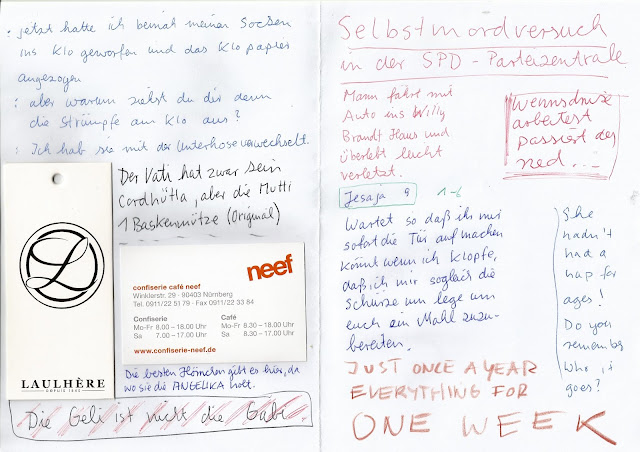 : jetzt hätte ich beinah meinen Socken
ins Klo geworfen und das Klopapier
angezogen
: aber warum ziehst du dir denn
die Strümpfe am Klo aus?
: Ich hab sie mit der Unterhose verwechselt.
Der Vati hat zwar sein
Cordhütla, aber die Mutti
1 Baskenmütze (Original)
L
LAULHÈRE
DEPUIS 1840
neef
confiserie café neef
Winklerstr. 29 - 90403 Nürnberg
Tel. 0911/22 51 79 - Fax 0911/22 33 84
Confiserie
Mo-Fr 8.00 – 18.00 Uhr
Sa 7.00 – 17.00 Uhr
Café
Mo-Fr 8.30 – 18.00 Uhr
Sa 8.30 – 17.30 Uhr
www.confiserie-neef.de
Die besten Hörnchen gibt es hier, da
wo sie die ANGELIKA holt.
Die Geli ist nicht die Gabi
Selbstmordversuch
in der SPD - Parteizentrale
Mann fährt mit
Auto ins Willy
Brandt Haus und
überlebt leicht
verletzt.
Wennsd
arbeitest
passiert der
ned...
Jesaja 9 1-6
Wartet so daß ihr mir
sofort die Tür aufmachen
könnt wenn ich klopfe,
daß ich mir sogleich die
Schürze um lege um
euch ein Mahl zuzu-
bereiten.
She
hadn't
had a
nap for
ages!
Do you
remember
Who is
goes?
JUST ONCE A YEAR
EVERYTHING FOR
ONE WEEK